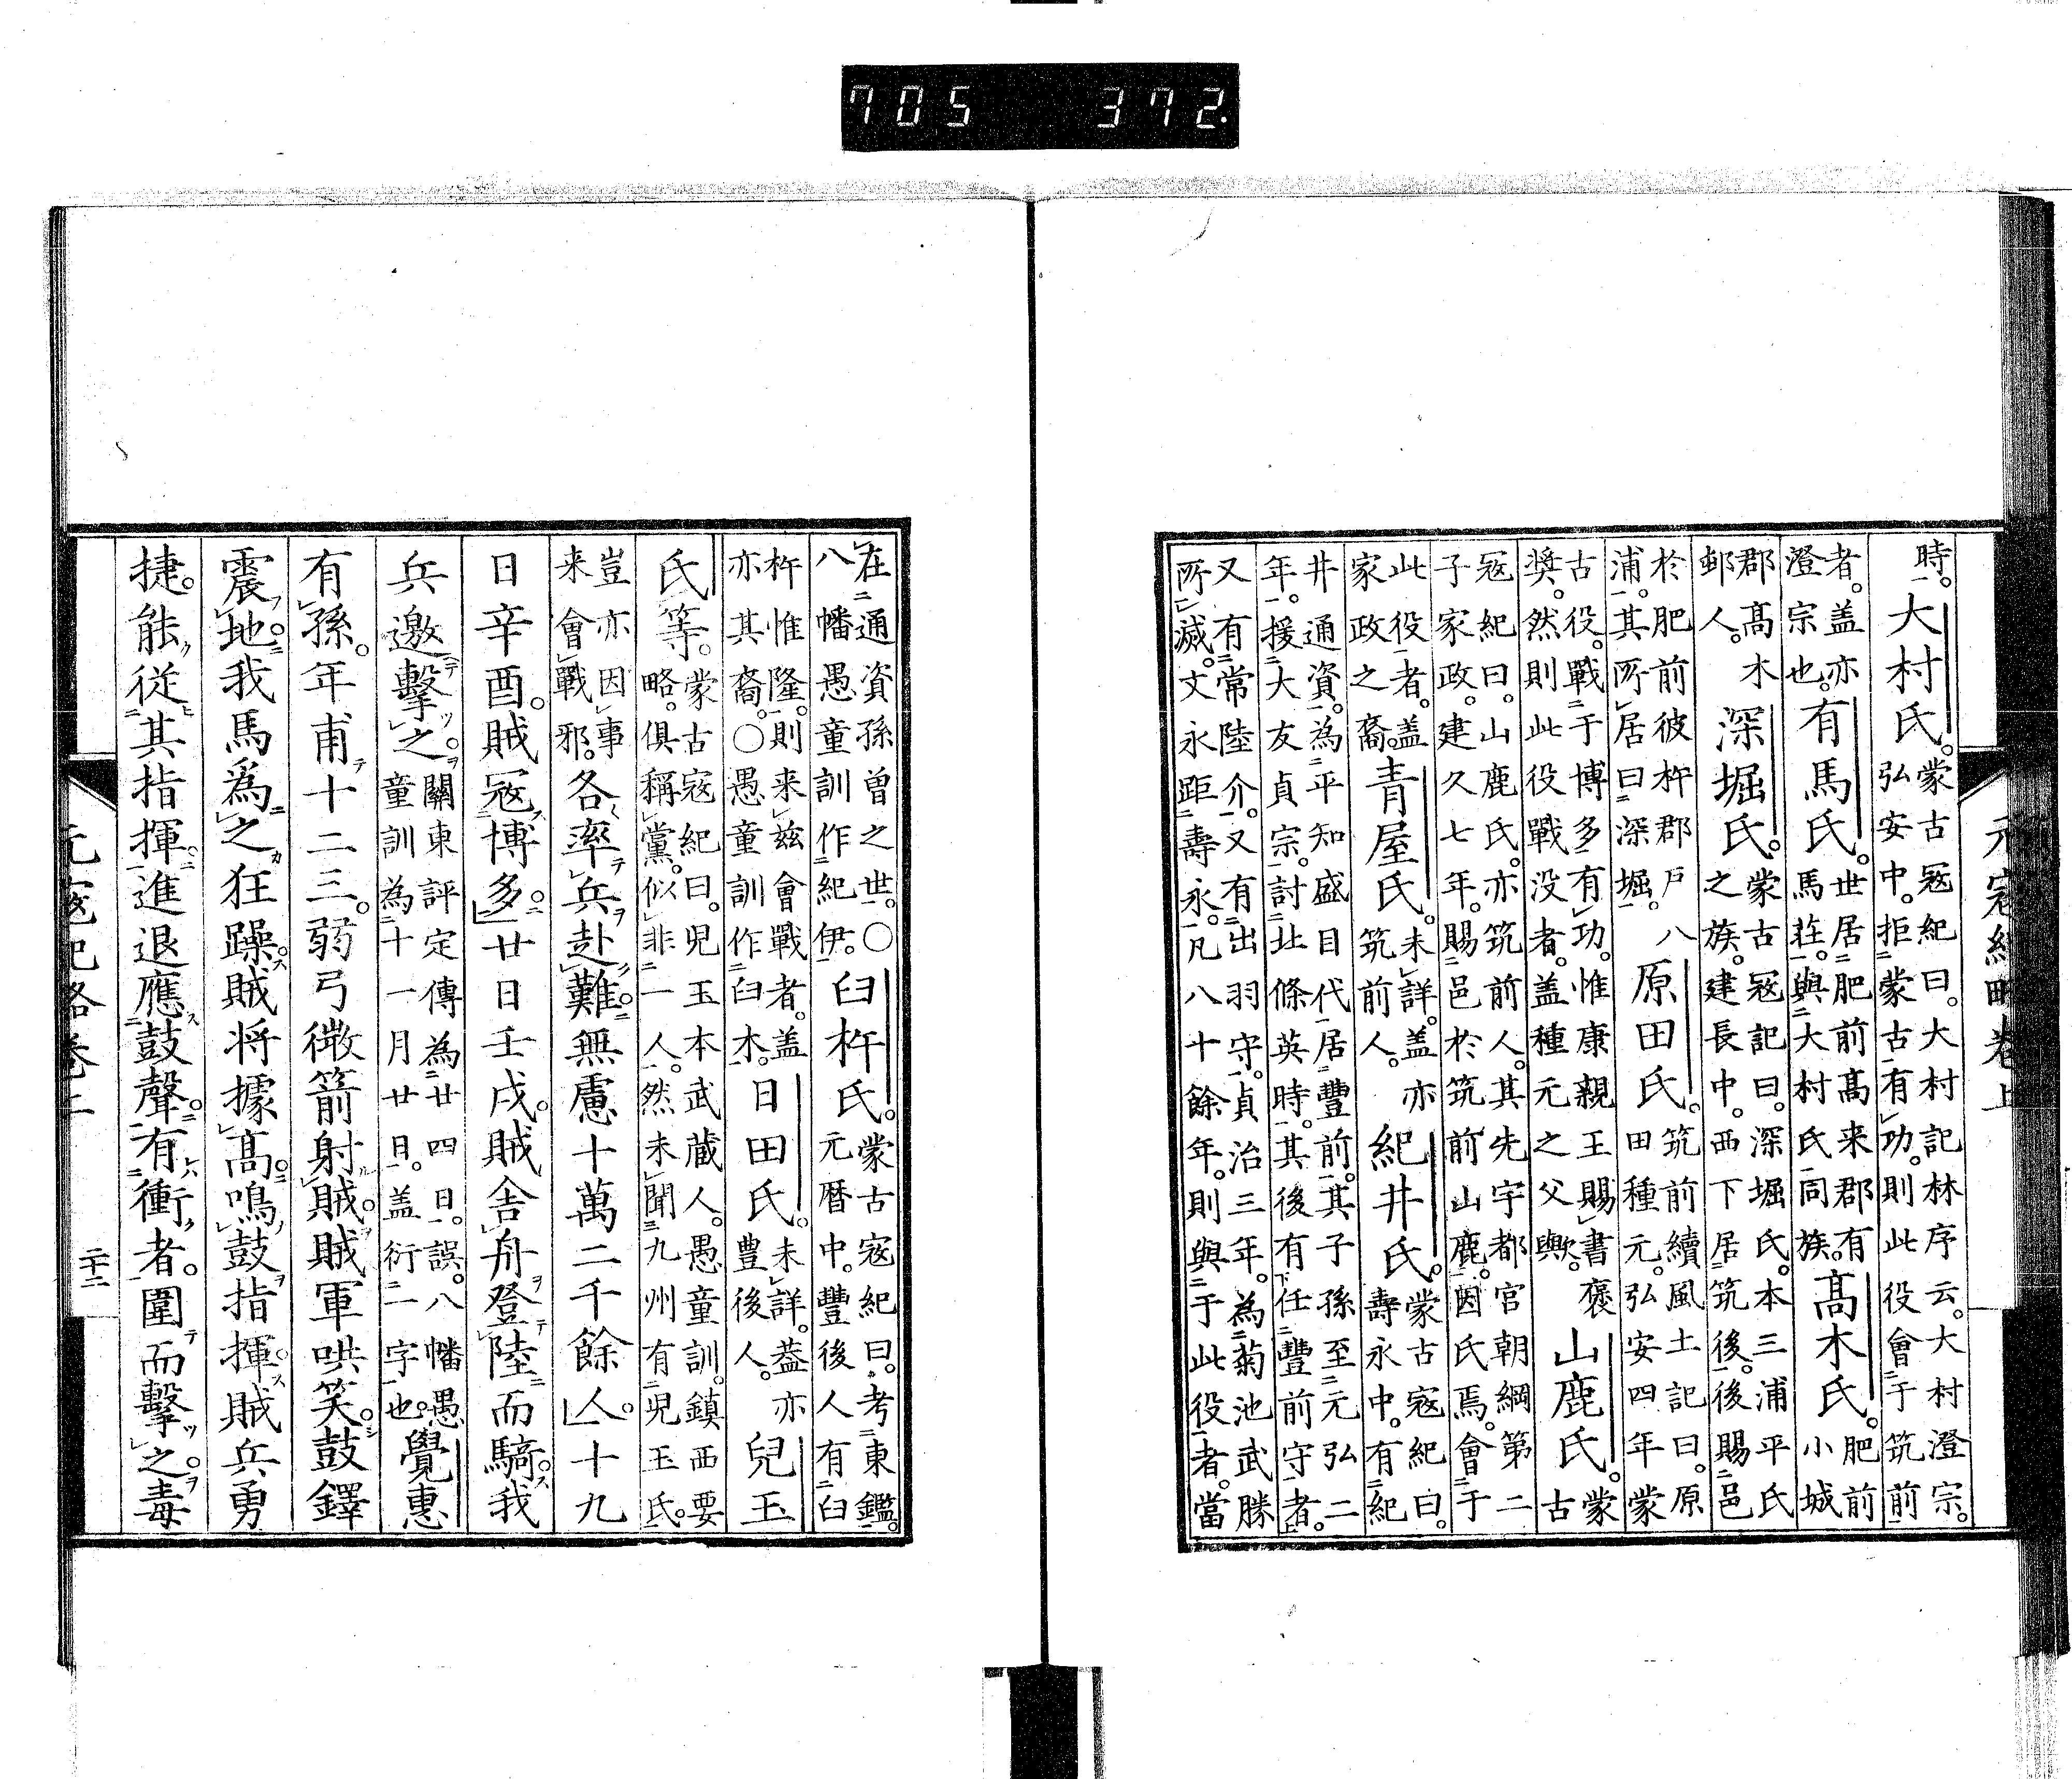 時。大村氏。蒙古寇紀曰。大村記林序云。大村澄宗。弘安中。拒蒙古有功。則此役會于筑前
者。盖亦澄宗也。有馬氏。世居肥前高来郡有馬荘。與大村氏同族。髙木氏。肥前小城
郡髙木邨人。深堀氏。蒙古寇記曰。深堀氏。本三浦平氏之族。建長中。西下居筑後。後賜邑
於肥前彼杵郡戸八浦。其所居曰深堀。原田氏。筑前續風土記曰。原田種元。弘安四年蒙
古役。戰于博多有功。惟康親王賜書褒奨。然則此役戰没者。盖種元之父歟。山鹿氏。蒙古
寇紀曰。山鹿氏。亦筑前人。其先宇都宮朝綱第二子家政。建久七年。賜邑於筑前山鹿。因氏焉。會于
此役者。盖家政之裔。青屋氏。未詳。盖亦筑前人。紀井氏。蒙古寇紀曰。壽永中。有紀
井通資。為平知盛目代居豐前。其子孫至元弘二年。援大友貞宗。討北條英時。其後有任豐前守者。
又有常陸介。又有出羽守。貞治三年。為菊池武勝所滅。文永距壽永。凡八十餘年。則與于此役者。當
在通資孫曾之世。○八幡愚童訓作紀伊。臼杵氏。蒙古寇紀曰。考東鑑。元暦中。豐後人有臼
杵惟隆。則来玆會戰者。盖亦其裔。○愚童訓作臼木。日田氏。未詳。盖亦豊後人。兒玉
氏等。蒙古寇紀曰。兒玉本武蔵人。愚童訓。鎮西要略。俱稱黨。似非一人。然未聞九州有兒玉氏。
豈亦因事来會戰邪。各率兵赴難。無慮十萬二千餘人。十九
日辛酉。賊寇博多。廿日壬戌。賊舎舟登陸而騎。我
兵邀擊之。關東評定傳為廿四日。誤。八幡愚童訓為十一月廿日。盖衍一字也。覺惠
有孫。年甫十二三。弱弓微箭射賊。賊軍哄笑。鼓鐸
震地。我馬為之狂躁。賊将據髙鳴鼓指揮。賊兵勇
捷。能從其指揮。進退應鼓聲。有衝者。圍而擊之。毒
元寇紀略卷上
二十二
705 372.